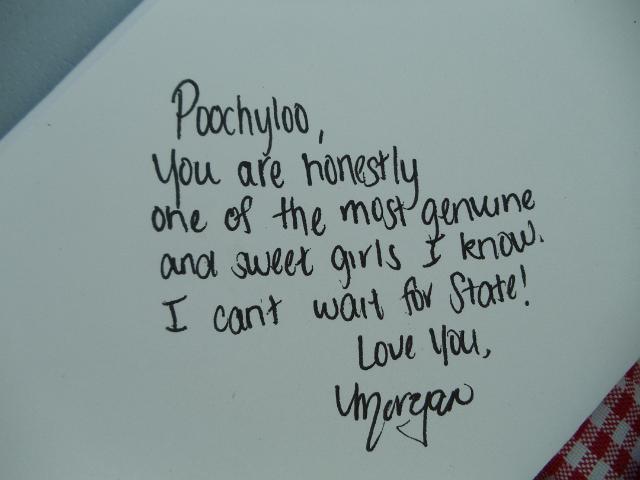 Poochyloo,
You are honestly
one of the most genuine
and sweet girls I know.
I can't wait for State!
Love You,
Morgan